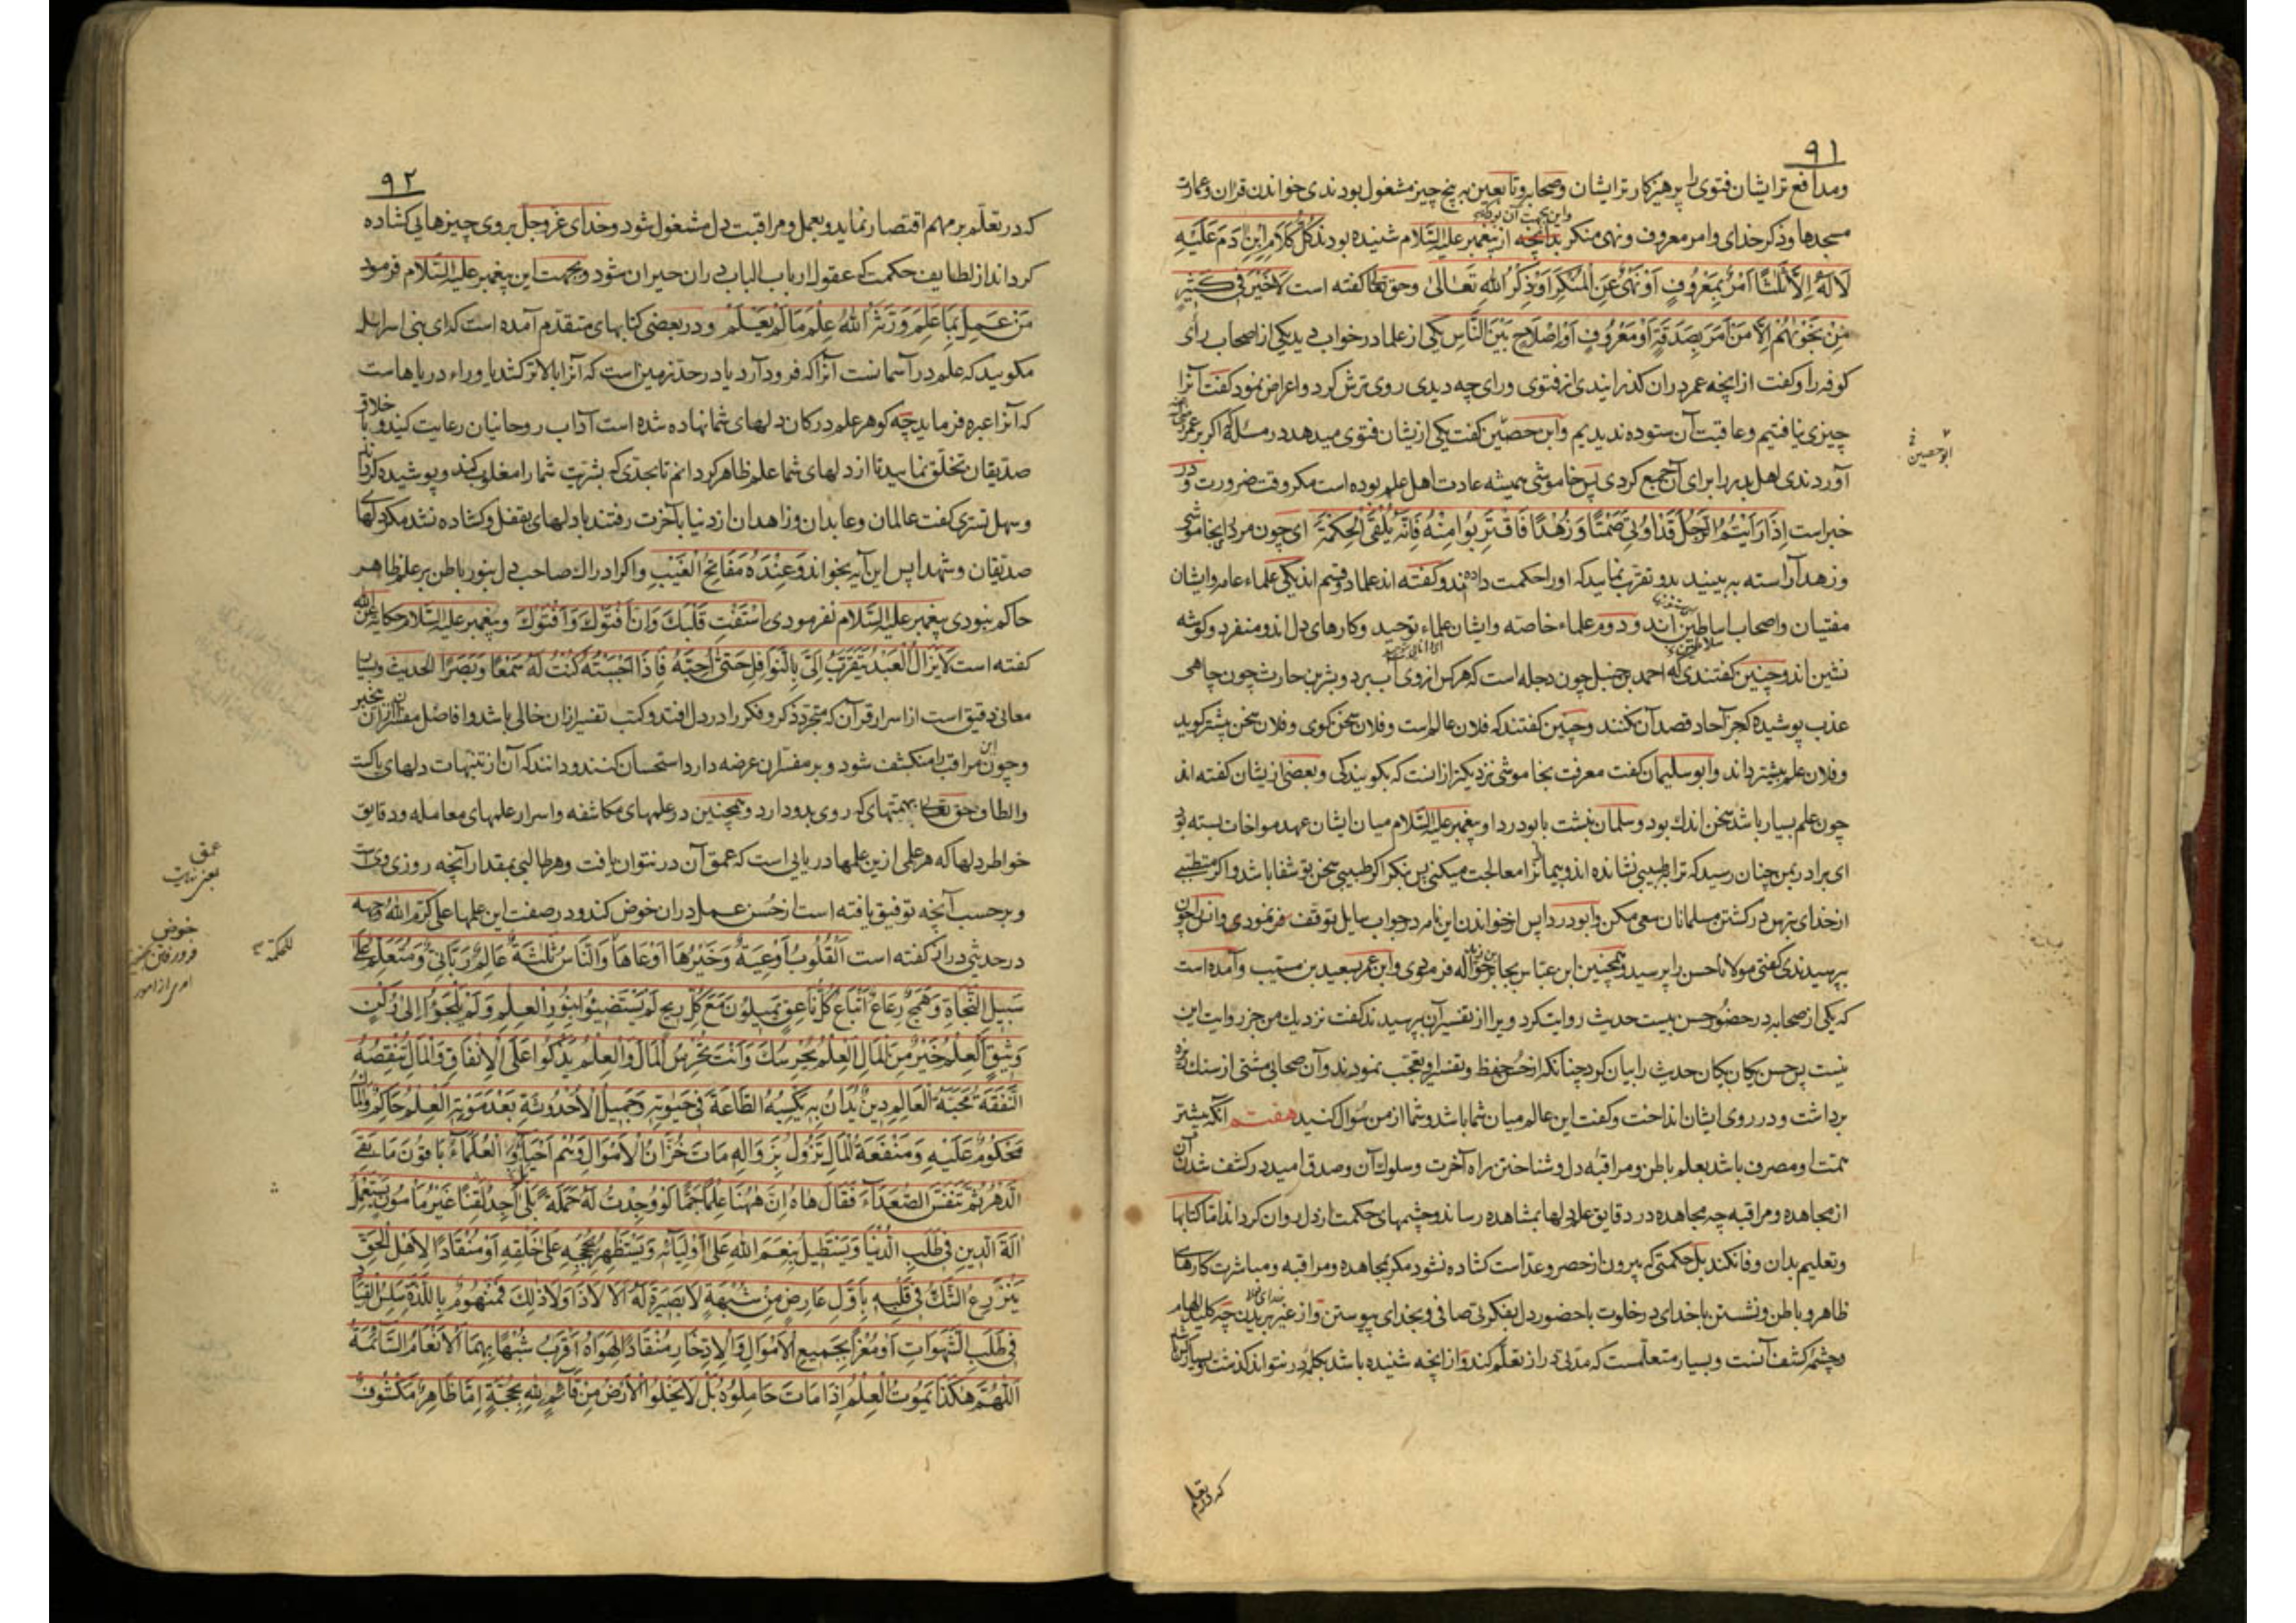 ٩١
ومدافع ترایشان فتوی را پرهیزکار ترایشان وصحابه وتابعین به پنج چیز مشغول بودندی خواندن قران وعمارت
مسجدها وذکر خدای وامر معروف ونهی منکر بدانچه از پیغمبر علیه السّلام شنیده بودند کُلُّ کَلَامِ ابْنِ آدَمَ عَلَیْهِ
لَا لَهُ اِلَّا ثَلَثًا اَمْرٌ بِمَعْرُوفٍ اَوْ نَهْیٌ عَنِ الْمُنْکَرِ اَوْ ذِکْرُ اللهِ تَعَالیٰ وحق تعالی کفته است لَا خَیْرَ فِی کَثِیرٍ
مِنْ نَجْوٰیهُمْ اِلَّا مَنْ اَمَرَ بِصَدَقَةٍ اَوْ مَعْرُوفٍ اَوْ اِصْلَاحٍ بَیْنَ النَّاسِ یکی از علما در خواب دید یکی از اصحاب رای
کوفه را وکفت از انچه عمر دران کذرانیدی از فتوی ورای چه دیدی روی ترش کرد واعراض نمود کفت آنرا
چیزی نیافتیم وعاقبت آن ستوده ندیدیم وابن حصین کفت یکی ازیشان فتوی میدهد در مسئله که اکر بر عمر
ابو حصین
آوردندی اهل بدر را برای آن جمع کردی پس خاموشی همیشه عادت اهل علم بوده است مکر وقت ضرورت ودر
خبر است اِذَا رَاَیْتُمُ الرَّجُلَ قَدْ اُوتِیَ صَمْتًا وَزُهْدًا فَاقْتَرِبُوا مِنْهُ فَاِنَّهُ یُلْقَی الْحِکْمَةَ ای چون مردی را بخاموشی
وزهد آراسته به بینید بدو تقرّب نمایید که اورا حکمت داده اند وکفته اند علما دو قسم اند یکی علماء عامه وایشان
مفتیان واصحاب اساطین اند ودوم علماء خاصّه وایشان علماء توحید وکارهای دل اند ومنفرد وکوشه
نشین اند وچنین کفتندی که احمد بن حنبل چون دجله است که هرکس ازوی آب برد وبشر بن حارث چون چاهی
عذب پوشیده که جز آحاد قصد آن نکنند وچنین کفتند که فلان عالم است وفلان سخن کوی وفلان سخن بیشتر کوید
وفلان علم بیشتر داند وابو سلیمان کفت معرفت بخاموشی نزدیکتر ازانست که بکویندکی وبعضی ازیشان کفته اند
چون علم بسیار باشد سخن اندک بود وسلمان نبشت بابودردا وپیغمبر علیه السّلام میان ایشان عهد مواخات بسته بود
ای برادر بمن چنان رسید که ترا بطبیبی نشانده اند وبیمانرا معالجت میکنی پس بنکر اکر طبیبی سخن بکو شفا باشد واکر متطبّبی
از خدای بترس در کشتن مسلمانان سعی مکن وابودردا پس از خواندن این نامه در جواب سایل توقف فرمودی وانس چون
بپرسیدندی کفتی مولانا حسن را بپرسید وهمچنین ابن عبّاس بجابر حواله فرمودی وابن عمر بسعید بن مسیّب وآمده است
که یکی از صحابه در حضور حسن بیست حدیث روایت کرد ویرا از تفسیر آن بپرسیدند کفت نزدیک من جز روایت این
نیست پس حسن یکان یکان حدیث را بیان کرد چنانکه از حسن حفظ وتفسیر او تعجّب نمودند وآن صحابی مشتی از سنک ریزه
برداشت ودر روی ایشان انداخت وکفت این عالم میان شما باشد وشما از من سؤال کنید هفتم آنکه بیشتر
همّت او مصرف باشد بعلم باطن ومراقبهٔ دل وشناختن راه آخرت وسلوک آن وصدق امید در کشف شدن آن
از مجاهده ومراقبه چه مجاهده در دقایق علم دلها بمشاهده رساند وچشمهای حکمت از دل روان کرداند امّا کتابها
وتعلیم بدان وفا نکند بل حکمتی که بیرون از حصر وعدّ است کشاده نشود مکر بمجاهده ومراقبه ومباشرت کارهای
ظاهر وباطن ونشستن باخدای در خلوت باحضور دل بفکرتی صافی وبخدای پیوستن واز غیر بریدن چه کلید الهام
وچشمه کشف آنست وبسیار متعلّمست که مدّتی دراز تعلّم کند واز انچه شنیده باشد بکلمهٔ در نتواند کذشت وبسیار کس
که در تعلّم
٩٢
که در تعلّم بر مهم اقتصار نماید وبعمل ومراقبت دل مشغول شود وخدای عزّ وجلّ بروی چیزهایی کشاده
کرداند از لطایف حکمت که عقول ارباب الباب دران حیران شود وبجهت این پیغمبر علیه السّلام فرمود
مَنْ عَمِلَ بِمَا عَلِمَ وَرَّثَهُ اللهُ عِلْمَ مَا لَمْ یَعْلَمْ ودر بعضی کتابهای متقدّم آمده است که ای بنی اسرایل
مکویید که علم در آسمانست آنرا که فرود آرد یا در حدّ زمین است که آنرا بالا تر کشد یا وراء دریاهاست
که آنرا عبره فرماید چه کوهر علم در کان دلهای شما نهاده شده است آداب روحانیان رعایت کنید وباخلاق
صدّیقان تخلّق نمایید تا از دلهای شما علم ظاهر کردانم تا بحدّی که بشریّت شما را مغلوب کند وپوشیده کرداند
وسهل تستری کفت عالمان وعابدان وزاهدان از دنیا بآخرت رفتند بادلهای بقفل وکشاده نشد مکر دلهای
صدّیقان وشهدا پس این آیه بخواند وَعِنْدَهُ مَفَاتِحُ الْغَیْبِ واکر ادراک صاحب دل بنور باطن بر علم ظاهر
حاکم نبودی پیغمبر علیه السّلام نفرمودی اسْتَفْتِ قَلْبَکَ وَاِنْ اَفْتَوْکَ وَاَفْتَوْکَ وپیغمبر علیه السّلام حکایة عن الله
کفته است لَا یَزَالُ الْعَبْدُ یَتَقَرَّبُ اِلَیَّ بِالنَّوَافِلِ حَتّیٰ اُحِبَّهُ فَاِذَا اَحْبَبْتُهُ کُنْتُ لَهُ سَمْعًا وَبَصَرًا الحدیث وبسا
معانی دقیق است از اسرار قرآن که متجرّد ذکر وفکر را در دل افتد وکتب تفسیر ازان خالی باشد وافاضل مفسّران ازان بیخبر
وچون این مراقب را منکشف شود وبر مفسّران عرضه دارد استحسان کنند ودانند که آن از تنبیهات دلهای پاکست
والطاف حق تعالی بهمتهای که روی بدو دارد وهمچنین در علمهای مکاشفه واسرار علمهای معامله ودقایق
خواطر دلها که هر علمی ازین علمها دریایی است که عمق آن در نتوان یافت وهر طالبی بمقدار آنچه روزی ویست
عمق
یعنی نهایت
وبر حسب آنچه توفیق یافته است از حُسن عمل دران خوض کند ودر صفت این علمها علی کرّم الله وجهه
خوض
فرو رفتن
امری از امور
للحکمة
در حدیثی دراز کفته است اَلْقُلُوبُ اَوْعِیَةٌ وَخَیْرُهَا اَوْعَاهَا وَالنَّاسُ ثَلٰثَةٌ عَالِمٌ رَبَّانِیٌّ وَمُتَعَلِّمٌ عَلٰی
سَبِیلِ النَّجَاةِ وَهَمَجٌ رِعَاعٌ اَتْبَاعُ کُلِّ نَاعِقٍ یَمِیلُونَ مَعَ کُلِّ رِیحٍ لَمْ یَسْتَضِیئُوا بِنُورِ الْعِلْمِ وَلَمْ یَلْجَؤُا اِلیٰ رُکْنٍ
وَثِیقٍ اَلْعِلْمُ خَیْرٌ مِنَ الْمَالِ الْعِلْمُ یَحْرُسُکَ وَاَنْتَ تَحْرُسُ الْمَالَ وَالْعِلْمُ یَزْکُوا عَلَی الْاِنْفَاقِ وَالْمَالُ تَنْقُصُهُ
النَّفَقَةُ مَحَبَّةُ الْعَالِمِ دِینٌ یُدَانُ بِهِ یَکْسِبُهُ الطَّاعَةَ فِی حَیٰوتِهِ وَجَمِیلَ الْاُحْدُوثَةِ بَعْدَ مَوْتِهِ الْعِلْمُ حَاکِمٌ وَالْمَالُ
مَحْکُومٌ عَلَیْهِ وَمَنْفَعَةُ الْمَالِ تَزُولُ بِزَوَالِهِ مَاتَ خُزَّانُ الْاَمْوَالِ وَهُمْ اَحْیَاءٌ وَالْعُلَمَاءُ بَاقُونَ مَا بَقِیَ
الدَّهْرُ ثُمَّ تَنَفَّسَ الصُّعَدَاءَ فَقَالَ هَاهْ اِنَّ هٰهُنَا عِلْمًا جَمًّا لَوْ وُجِدْتُ لَهُ حَمَلَةً بَلیٰ اَجِدُ لَقِنًا غَیْرَ مَأْمُونٍ یَسْتَعْمِلُ
اٰلَةَ الدِّینِ فِی طَلَبِ الدُّنْیَا وَیَسْتَطِیلُ بِنِعَمِ اللهِ عَلیٰ اَوْلِیَائِهِ وَیَسْتَظْهِرُ بِحُجَجِهِ عَلیٰ خَلْقِهِ اَوْ مُنْقَادًا لِاَهْلِ الْحَقِّ
یَنْزَرِعُ الشَّکُّ فِی قَلْبِهِ بِاَوَّلِ عَارِضٍ مِنْ شُبْهَةٍ لَا بَصِیرَةَ لَهُ اَلَا لَا ذَا وَلَا ذٰلِکَ فَمَنْهُومٌ بِاللَّذَّةِ سَلِسُ الْقِیَادِ
فِی طَلَبِ الشَّهَوَاتِ اَوْ مُغْرًا بِجَمِیعِ الْاَمْوَالِ وَالْاِدِّخَارِ مُنْقَادًا لِهَوَاهُ اَقْرَبُ شَبَهًا بِهِمَا الْاَنْعَامُ السَّائِمَةُ
اَللّٰهُمَّ هٰکَذَا یَمُوتُ الْعِلْمُ اِذَا مَاتَ حَامِلُوهُ بَلْ لَا یَخْلُوا الْاَرْضُ مِنْ قَائِمٍ لِلّٰهِ بِحُجَّةٍ اِمَّا ظَاهِرٌ مَکْشُوفٌ